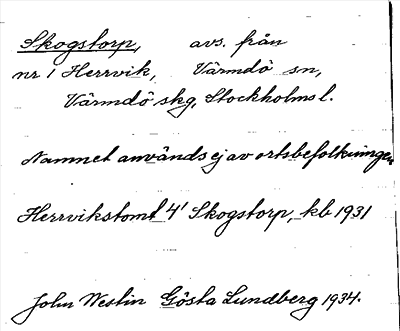 Skogstorp, avs. från
nr 1 Herrvik, Värmdö sn,
Värmdö skg, Stockholms l.
Namnet används ej av ortsbefolkningen
Herrvikstomt 4¹ Skogstorp, kb 1931
John Westin Gösta Lundberg 1934.